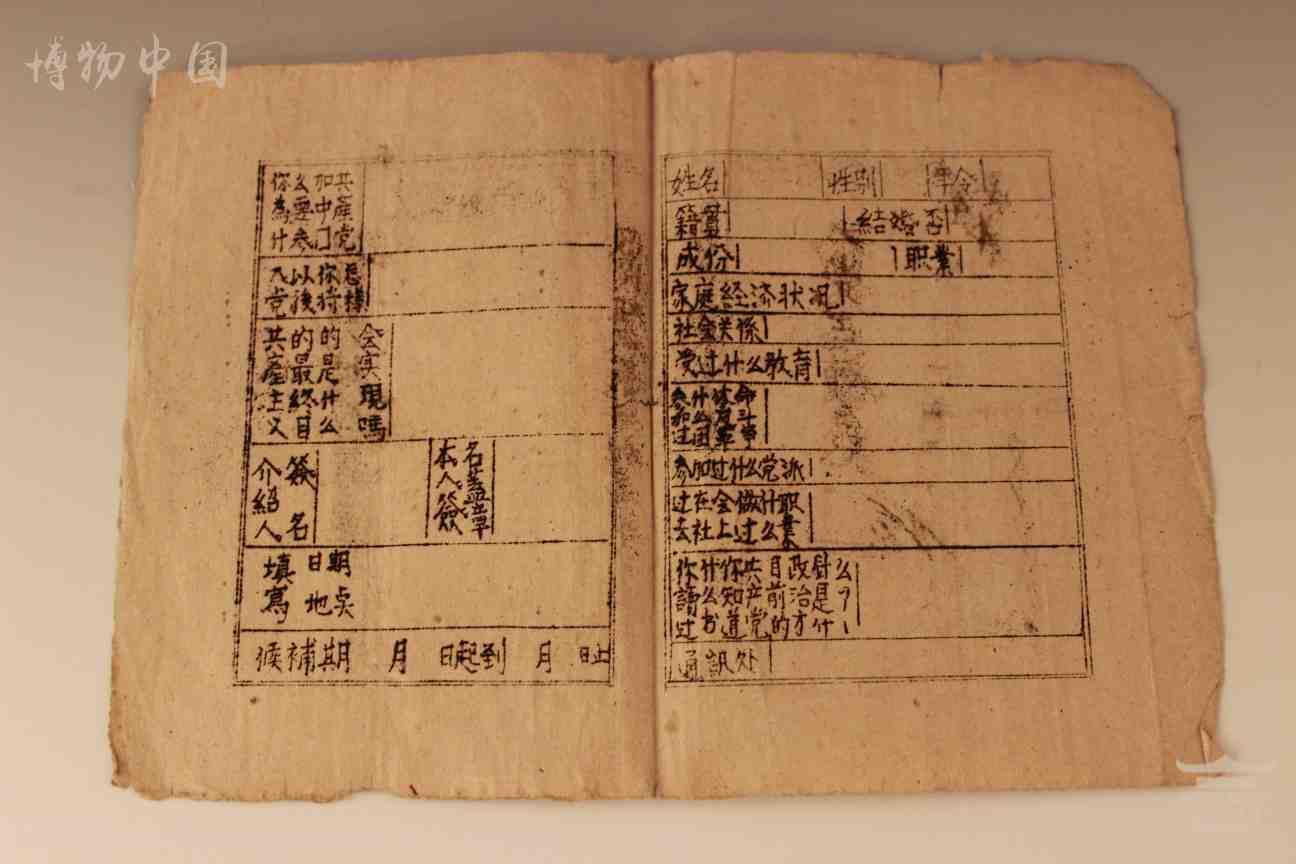 博物中国
姓名 性别 年令
籍貫 結婚否
成份 职業
家庭经济状况
社会关係
受过什么教育
参加过什么团体革命斗争
参加过什么党派
过去在社会上做过什么职業
你讀过什么书你知道共产党目前的政治方針是什么?
通訊处
你為什么要参加中囗共產党
入党以後你将怎樣
共產主义的最終目的是什么会实現嗎
介紹人簽名 本人簽名盖章
填寫日期地点
候補期 月 日起到 月 日止